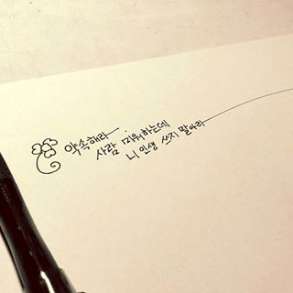 약속해라
사람 미워하는데
니 인생 쓰지 말아라